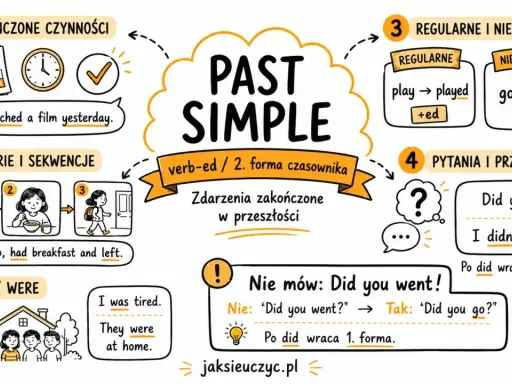 CZONE CZYNNOŚCI
ched a film yesterday.
RIE I SEKWENCJE
2
3
, had breakfast and left.
WERE
I was tired.
They were
at home.
PAST
SIMPLE
verb-ed / 2. forma czasownika
Zdarzenia zakończone
w przeszłości
3 REGULARNE I NIE
REGULARNE
play → played
+ed
NIE
go
4 PYTANIA I PRZ
?
Did y
I didn
Po did wraca
! Nie mów: Did you went!
Nie: "Did you went?" → Tak: "Did you go?"
Po did wraca 1. forma.
jaksieuczyc.pl